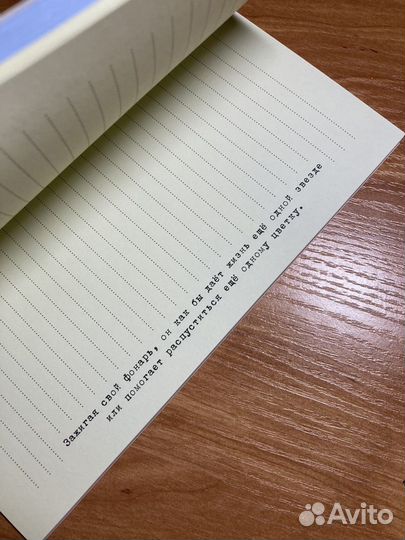 Зажигая свой фонарь, он как бы даёт жизнь ещё одной звезде
или помогает распуститься ещё одному цветку.
Avito